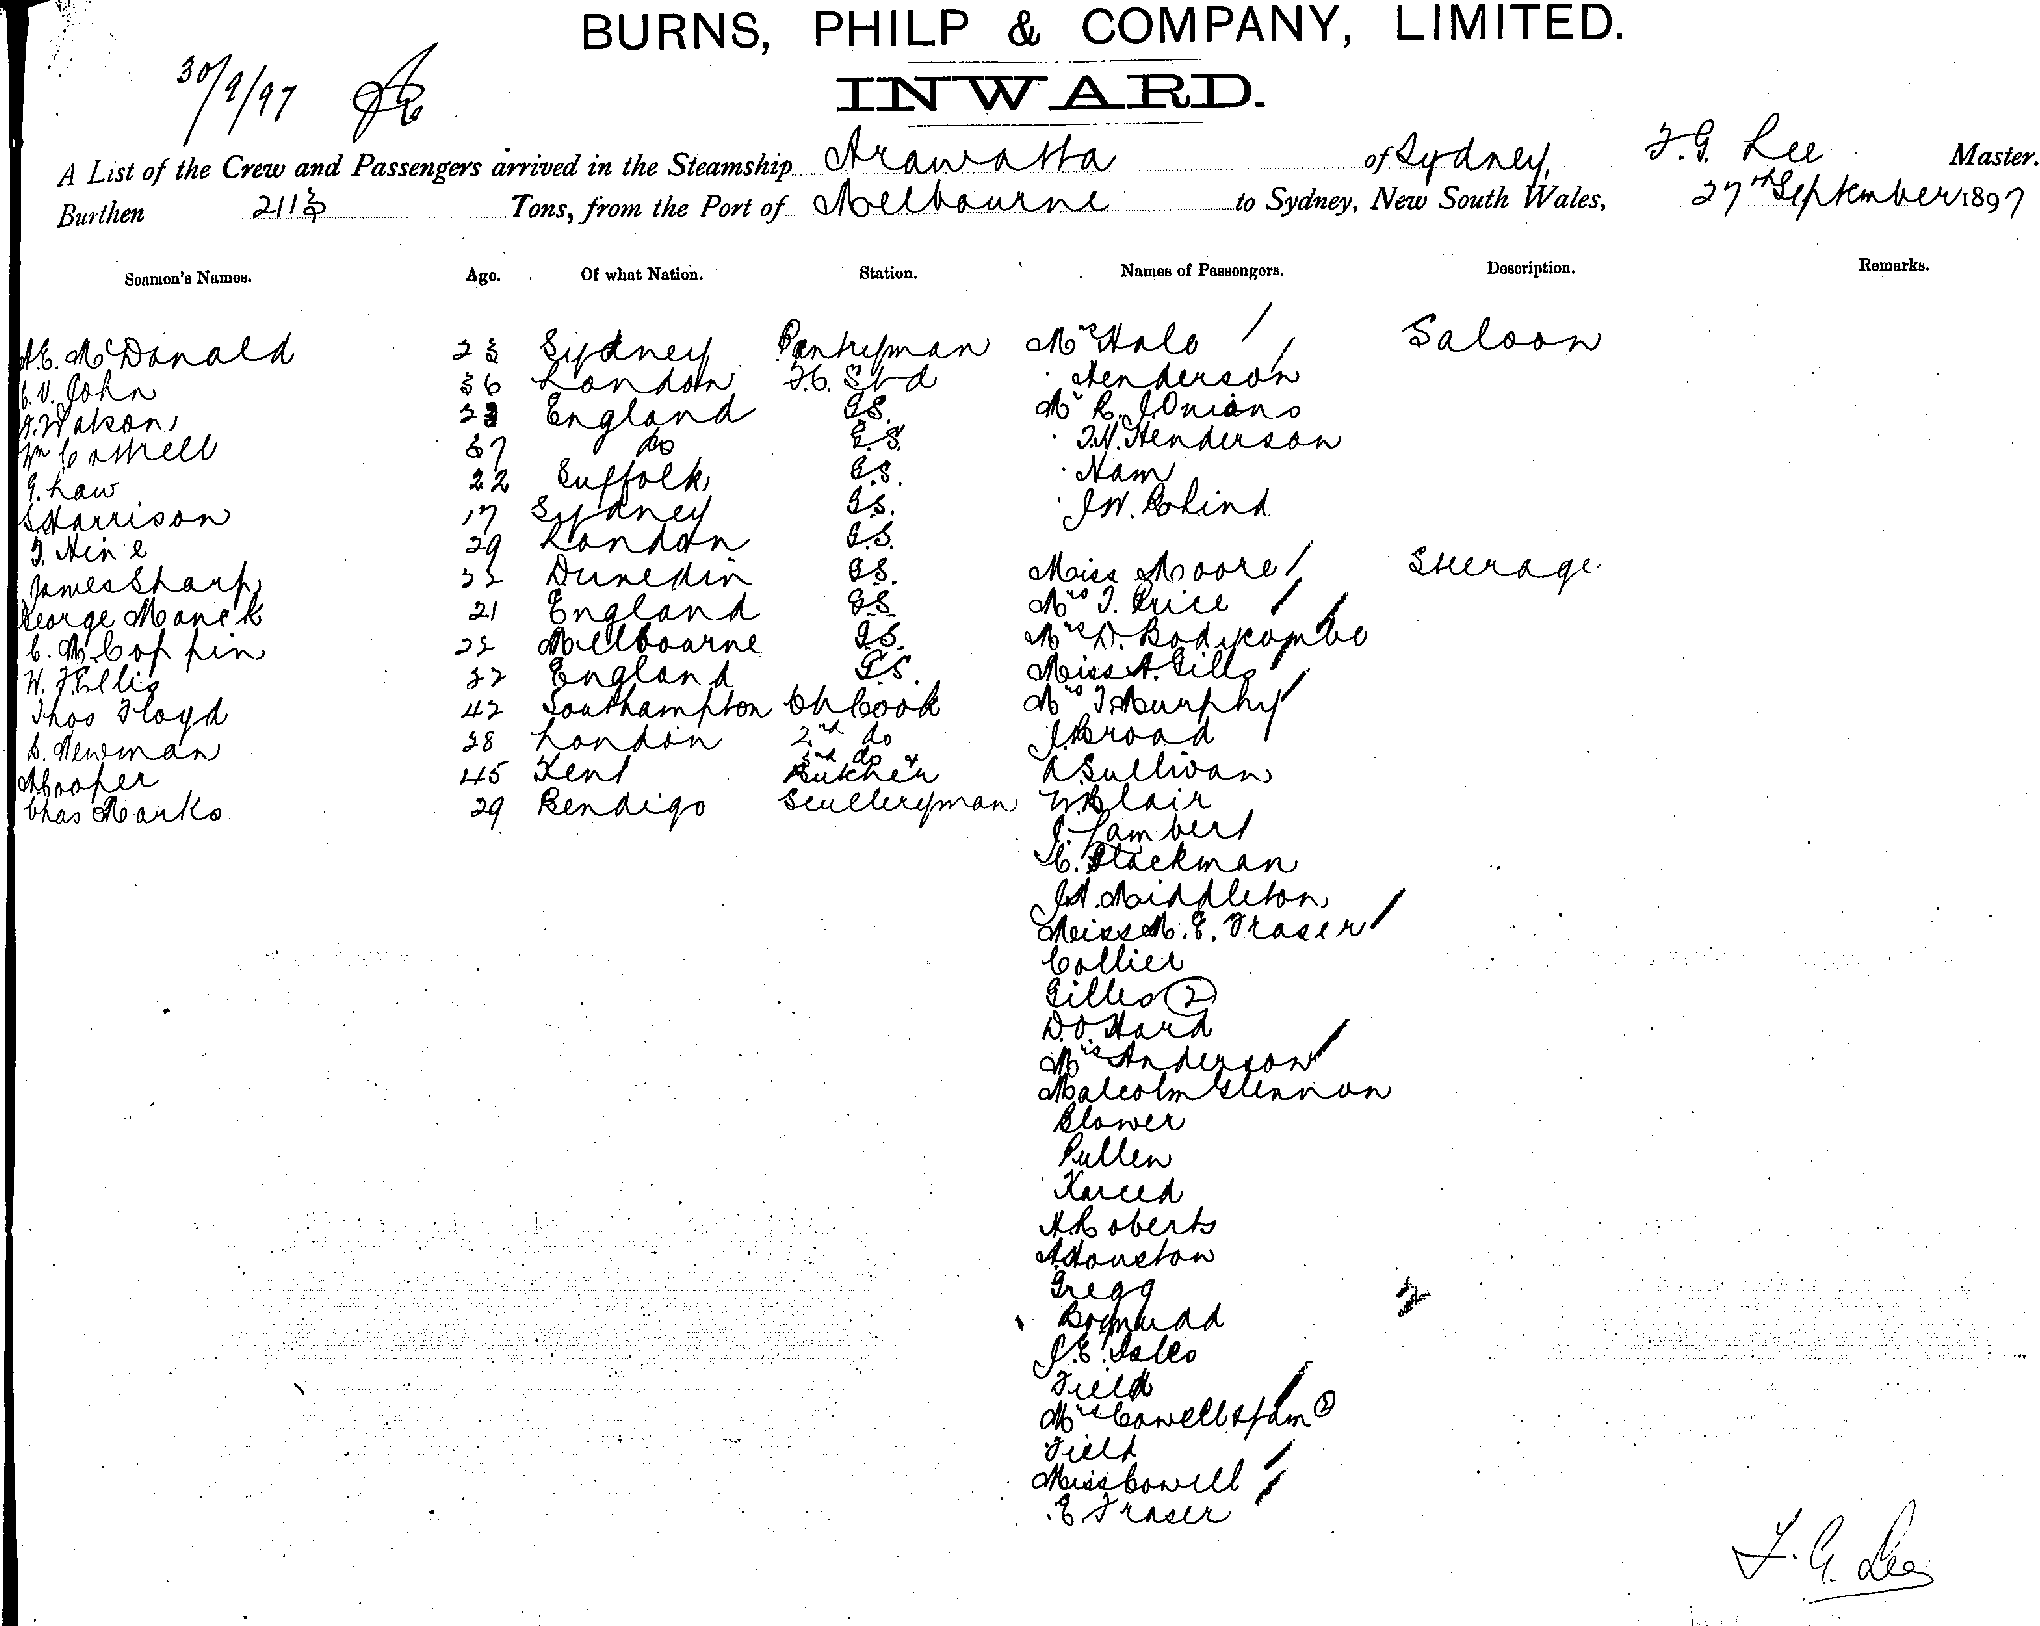 BURNS, PHILP & COMPANY, LIMITED.
INWARD.
30/9/97
A List of the Crew and Passengers arrived in the Steamship Arawatta of Sydney, F. G. Lee Master.
Burthen 2113 Tons, from the Port of Melbourne to Sydney, New South Wales, 27th September 1897
Seamen's Names. Age. Of what Nation. Station. Names of Passengers. Description. Remarks.
A. C. McDonald 23 Sydney Pantryman Mrs Hale Saloon
C. V. John 36 London F. C. Std Henderson
Watson England G.S. Mr R. J. Onians
Wm Cottrell 37 do G.S. F. H. Henderson
G. Law 22 Suffolk G.S. Ham
S Harrison 17 Sydney G.S. J W.
T. Hine 29 London G.S.
James Sharp 22 Dunedin G.S. Miss Moore Steerage
George Manek 21 England G.S. Mrs T. Price
C. M. Coppin 22 Melbourne G.S. Mrs D. Bodycombe
W. F. Ellis 32 England G.S. Miss A. Gills
Thos Floyd 42 Southampton Ch Cook Mrs T Murphy
S. Newman 28 London 2nd do J. Broad
A Cooper 45 Kent 3rd do & Butcher A Sullivan
Chas Marks 29 Bendigo Sculleryman W. Blair
J. Lambert
C. Blackman
J. H. Middleton
Miss M. E. Fraser
Collier
Gilles 2
D. O. Hard
Mrs Anderson
Malcolm Glennon
Blower
Pullen
Kareed
A Roberts
A Houston
Gregg
J. E. Isles
Field
Mrs Cowell & fam 2
Field
Miss Cowell
E Fraser
F. G. Lee